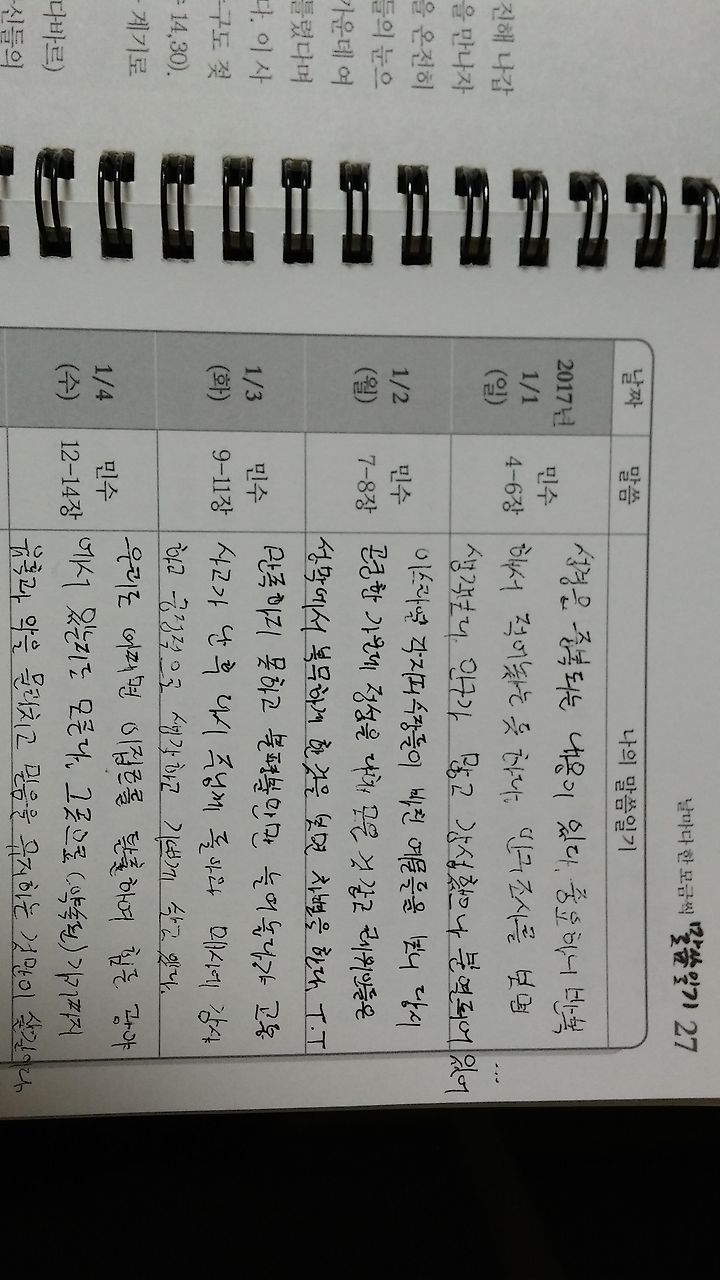 진해 나갑
을 만나자
을 온전히
들의 눈으
가운데 여
틀렸다며
다. 이 사
구도 젖
14,30).
계기로
다바르)
신들의
날마다 한 모금씩 말씀읽기 27
날짜 말씀 나의 말씀읽기
2017년
1/1
(일)
민수
4-6장
성경은 중복되는 내용이 있다. 중요하니 반복
해서 적어놨는 듯 하다. 인구조사를 보면
생각보다 인구가 많고 감실했으나 분열되어 있어
...
1/2
(월)
민수
7-8장
이스라엘 각지파 수장들이 바친 예물들을 보니 당시
곤궁한 가운데 정성을 다해 모은 것 같고 레위인들은
성막에서 복무하게 한 것을 보면 차별을 한다. T.T
1/3
(화)
민수
9-11장
만족하지 못하고 불평불만만 늘어놓다가 교통
사고가 난 후 다시 주님께 돌아와 매사에 감사
하고 긍정적으로 생각하고 기쁘게 살고 있다.
1/4
(수)
민수
12-14장
우리도 어쩌면 이집트를 탈출하여 힘든 광야
에서 있는지도 모른다. 그곳으로(약속된) 가기까지
악을 물리치고 믿음을 유지하는 것만이 살길이다